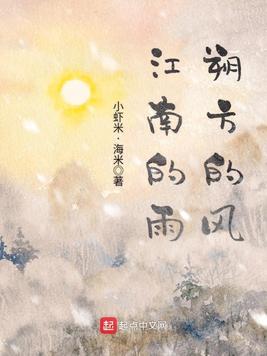 朔方的风
江南的雨
小虾米·海米◎著
起点中文网